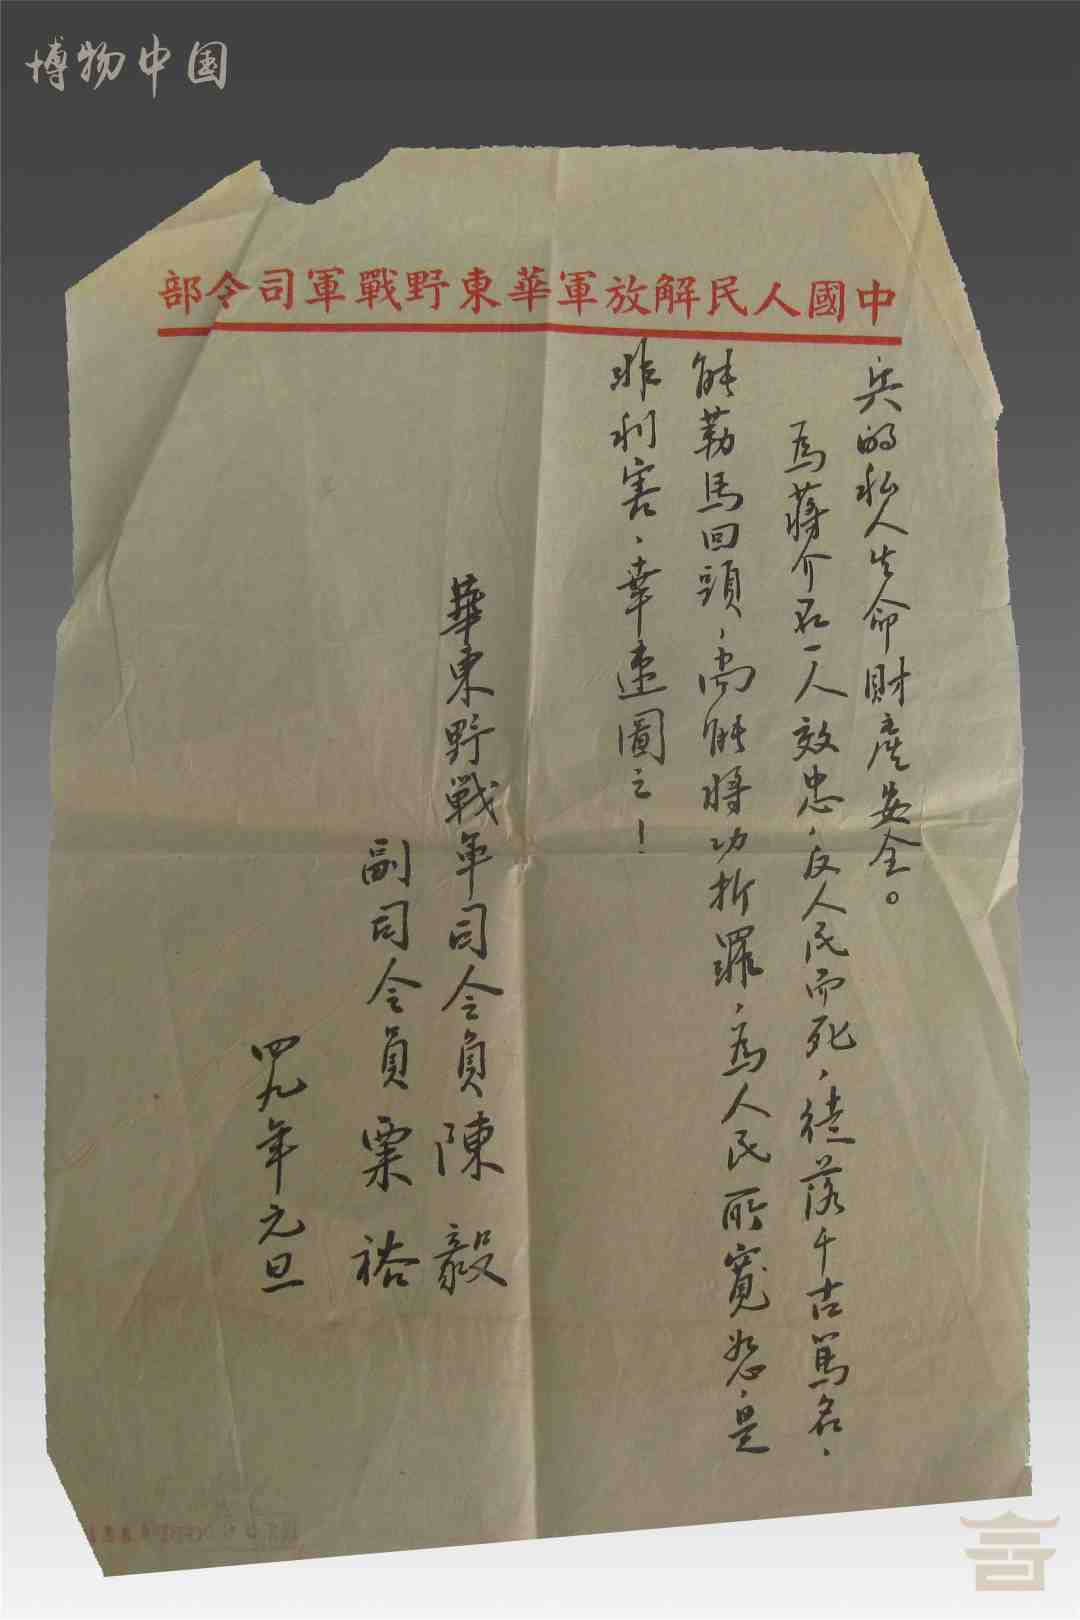 博物中国
中國人民解放軍華東野戰軍司令部
兵的私人生命財產安全。
為蔣介石一人效忠，反人民而死，徒落千古罵名，
能勒馬回頭，尚能將功折罪，為人民所寬恕，是
非利害，幸速圖之！
華東野戰軍司令員陳毅
副司令員粟裕
四九年元旦